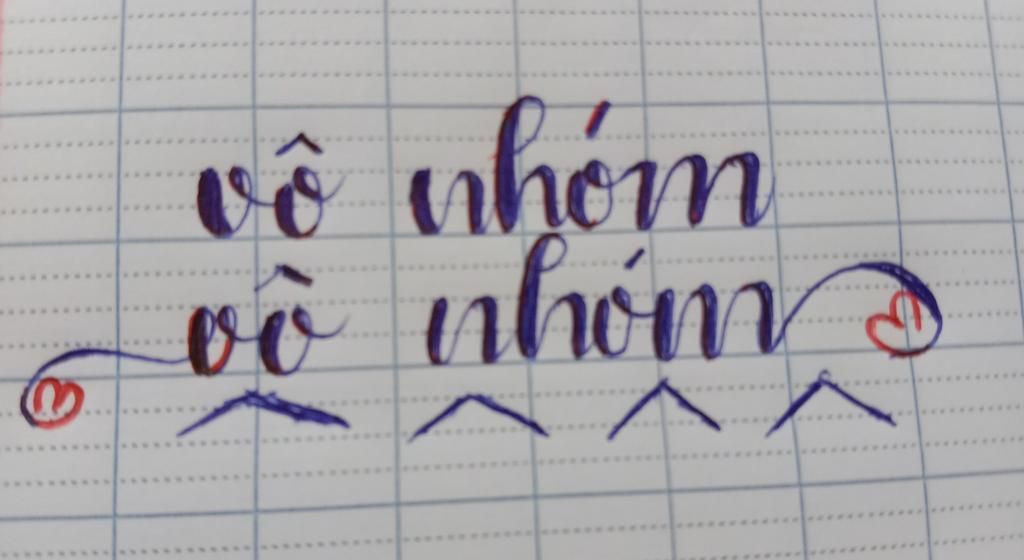 vô nhóm
vô nhóm